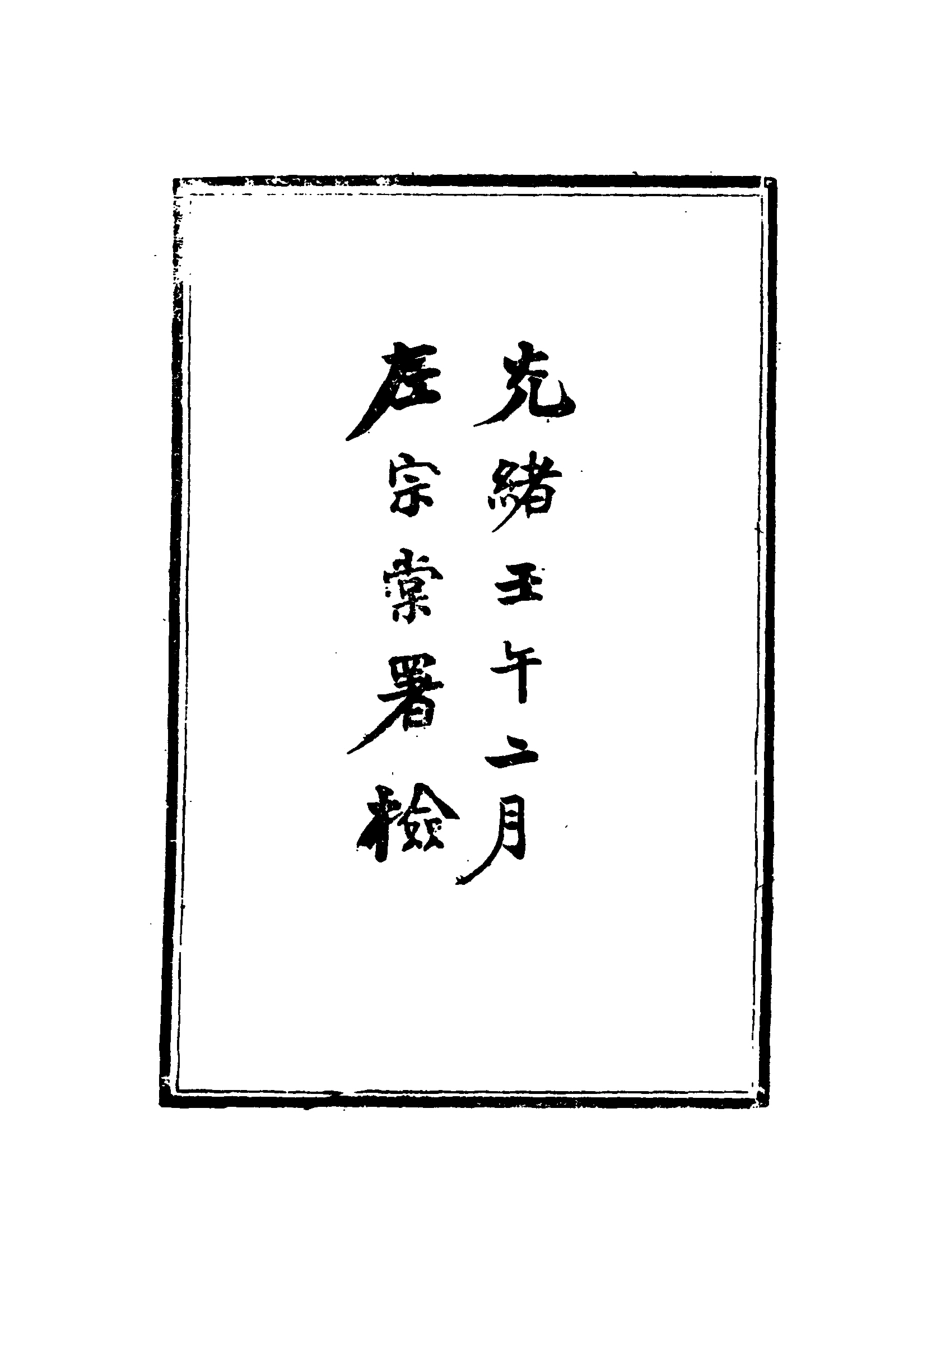 光緒壬午二月
左宗棠署檢